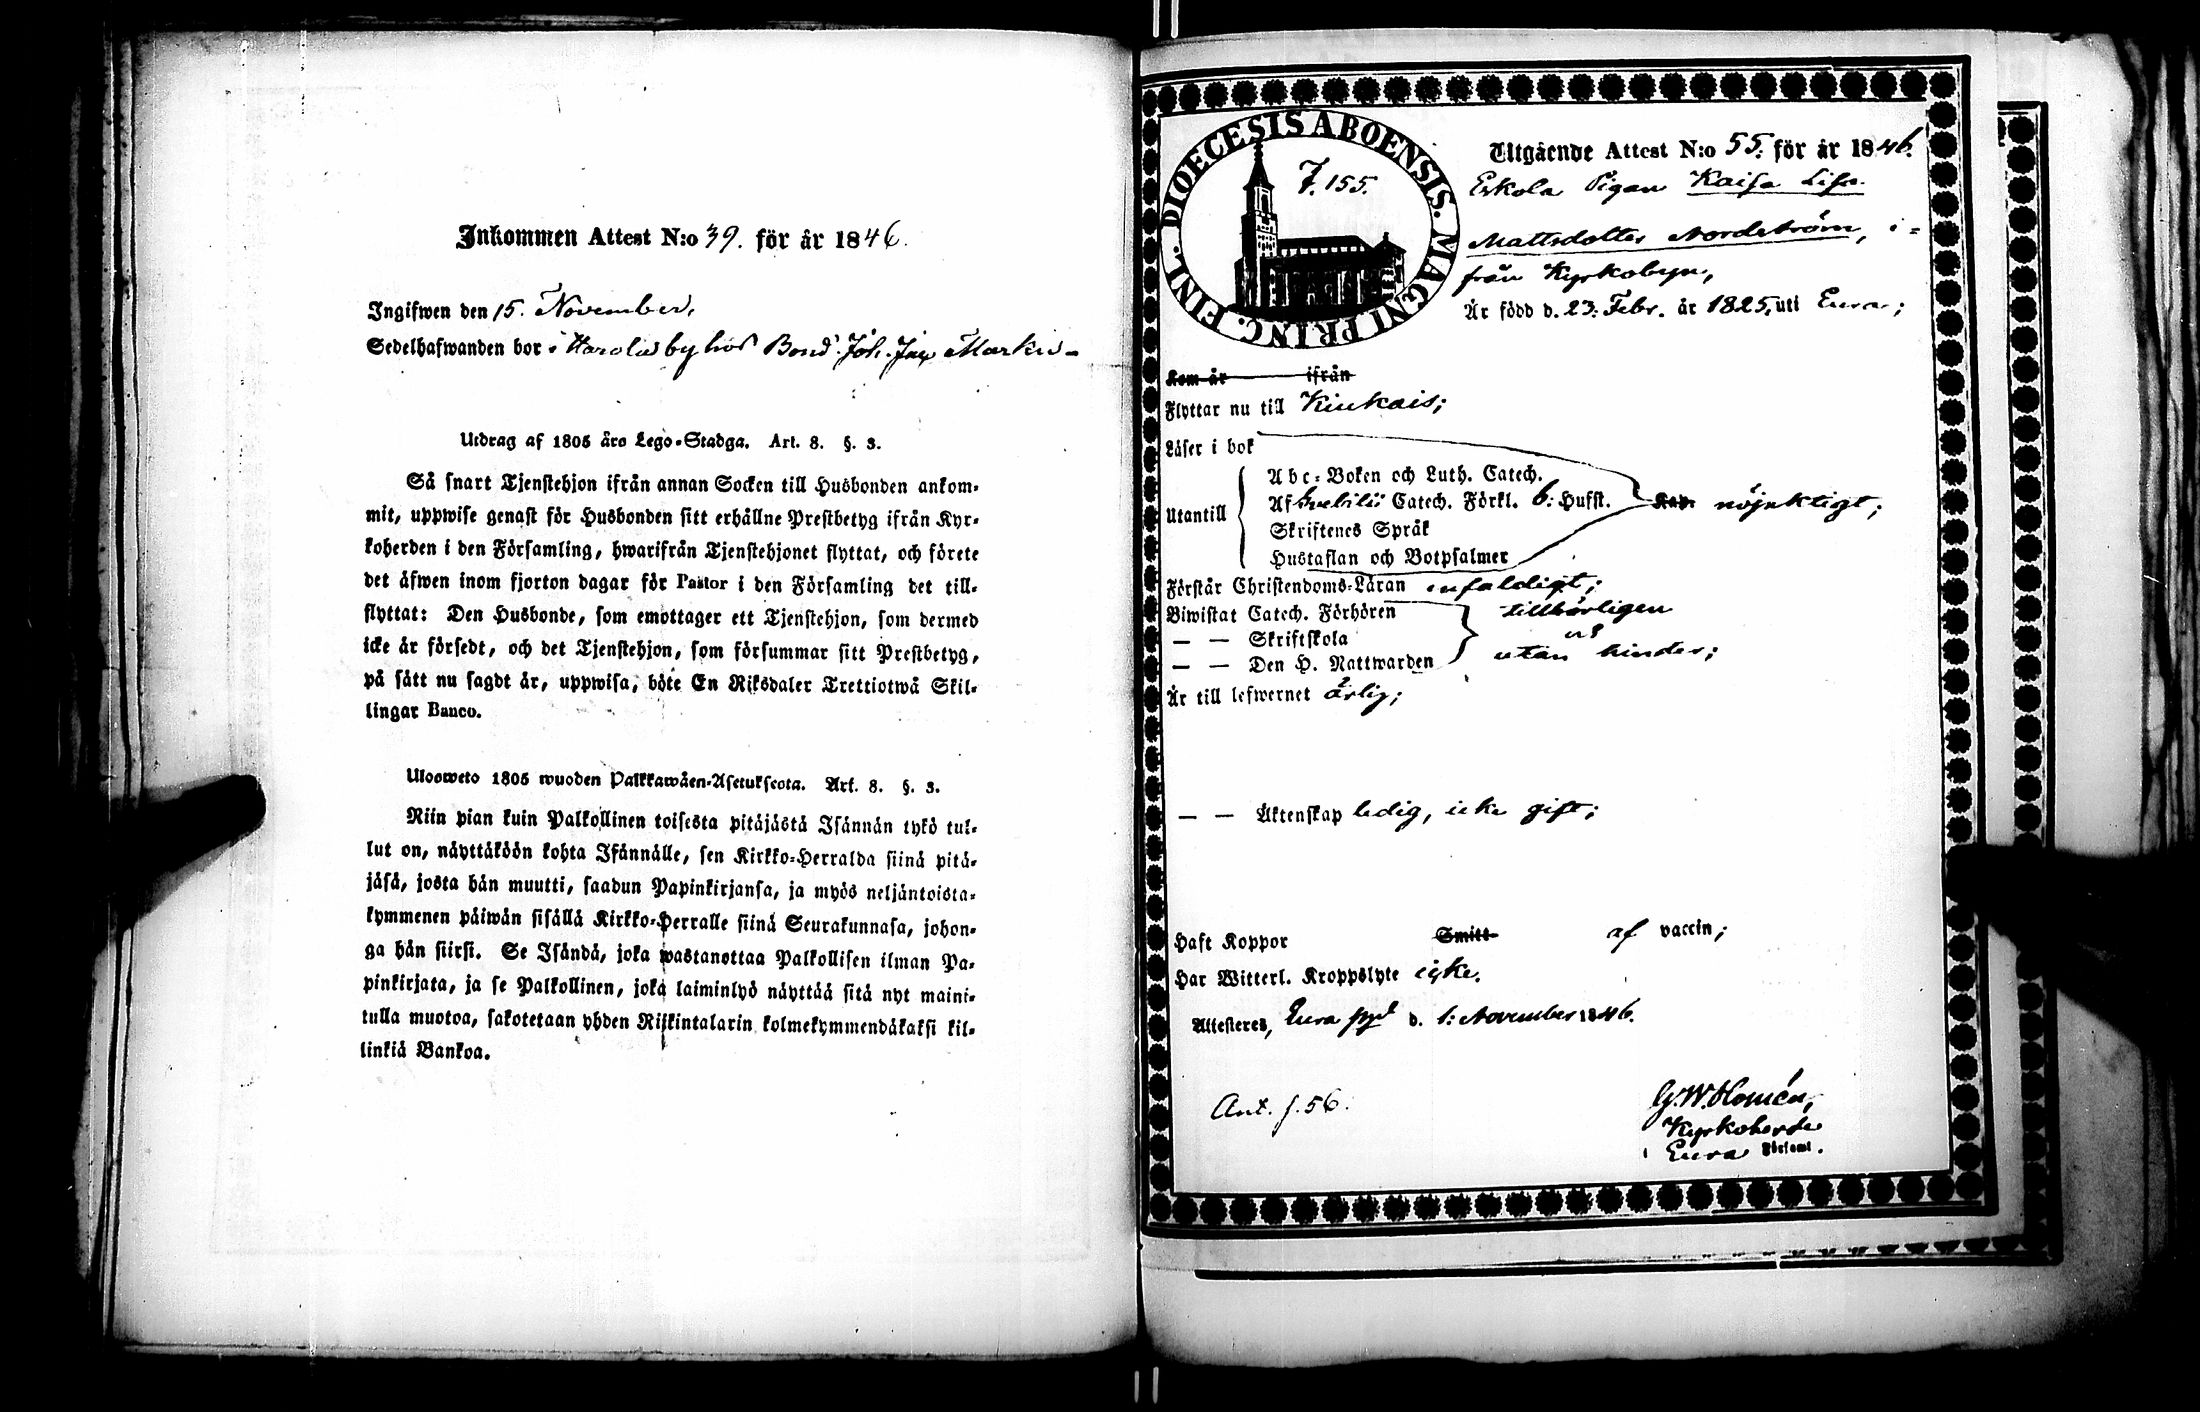 Inkommen Attest N:o 39. för år 1846.
Ingifwen den 15. November.
Sedelhafwanden bor i Harola by hos Bond. Joh. Jac. Markus-
Utdrag af 1805 års Lego-Stadga. Art. 8. §. 3.
Så snart Tjenstehjon ifrån annan Socken till Husbonden ankom-
mit, uppwise genast för Husbonden sitt erhållne Prestbetyg ifrån Kyr-
koherden i den Församling, hwarifrån Tjenstehjonet flyttat, och förete
det äfwen inom fjorton dagar för Pastor i den Församling det till-
flyttat: Den Husbonde, som emottager ett Tjenstehjon, som dermed
icke är försedt, och det Tjenstehjon, som försummar sitt Prestbetyg,
på sätt nu sagdt är, uppwisa, böte En Riksdaler Trettiotwå Skil-
lingar Banco.
Ulosweto 1805 wuoden Palkkawäen-Asetuksesta. Art. 8. §. 3.
Niin pian kuin Palkollinen toisesta pitäjästä Isännän tykö tul-
lut on, näyttäköön kohta Isännälle, sen Kirkko-Herralda siinä pitä-
jäsä, josta hän muutti, saadun Papinkirjansa, ja myös neljäntoista-
kymmenen päiwän sisällä Kirkko-Herralle siinä Seurakunnasa, johon-
ga hän siirsi. Se Isändä, joka wastanottaa Palkollisen ilman Pa-
pinkirjata, ja se Palkollinen, joka laiminlyö näyttää sitä nyt maini-
tulla muotoa, sakotetaan yhden Riikintalarin kolmekymmendäkaksi kil-
linkiä Bankoa.
DIOECESIS ABOENSIS. MAGNI PRINC. FINL.
F. 155.
Utgående Attest N:o 55. för år 1846.
Eskola Pigan Kaisa Lisa
Mattsdotter Nordström, i-
från Kyrkobyn,
Är född d. 23. Febr. år 1825, uti Eura;
Kom år ifrån
Flyttar nu till Kiukais;
Läser i bok
Utantill
Abc-Boken och Luth. Catech.
Af Svebilii Catech. Förkl. 6: Hufst. Kap. nöjaktigt;
Skriftenes Språk
Hustaflan och Botpsalmer
Förstår Christendoms-Läran enfaldigt;
Biwistat Catech. Förhören tillbörligen
— — Skriftskola och
— — Den H. Nattwarden utan hinder;
Är till lefwernet ärlig;
— — Äktenskap ledig, icke gift;
Haft Koppor Smitt af vaccin;
Har Witterl. Kroppslyte icke.
Attesteres, Eura ppt d. 1. November 1846.
Ant. f. 56.
G. W. Homén,
Kyrkoherde
i Eura Församl.